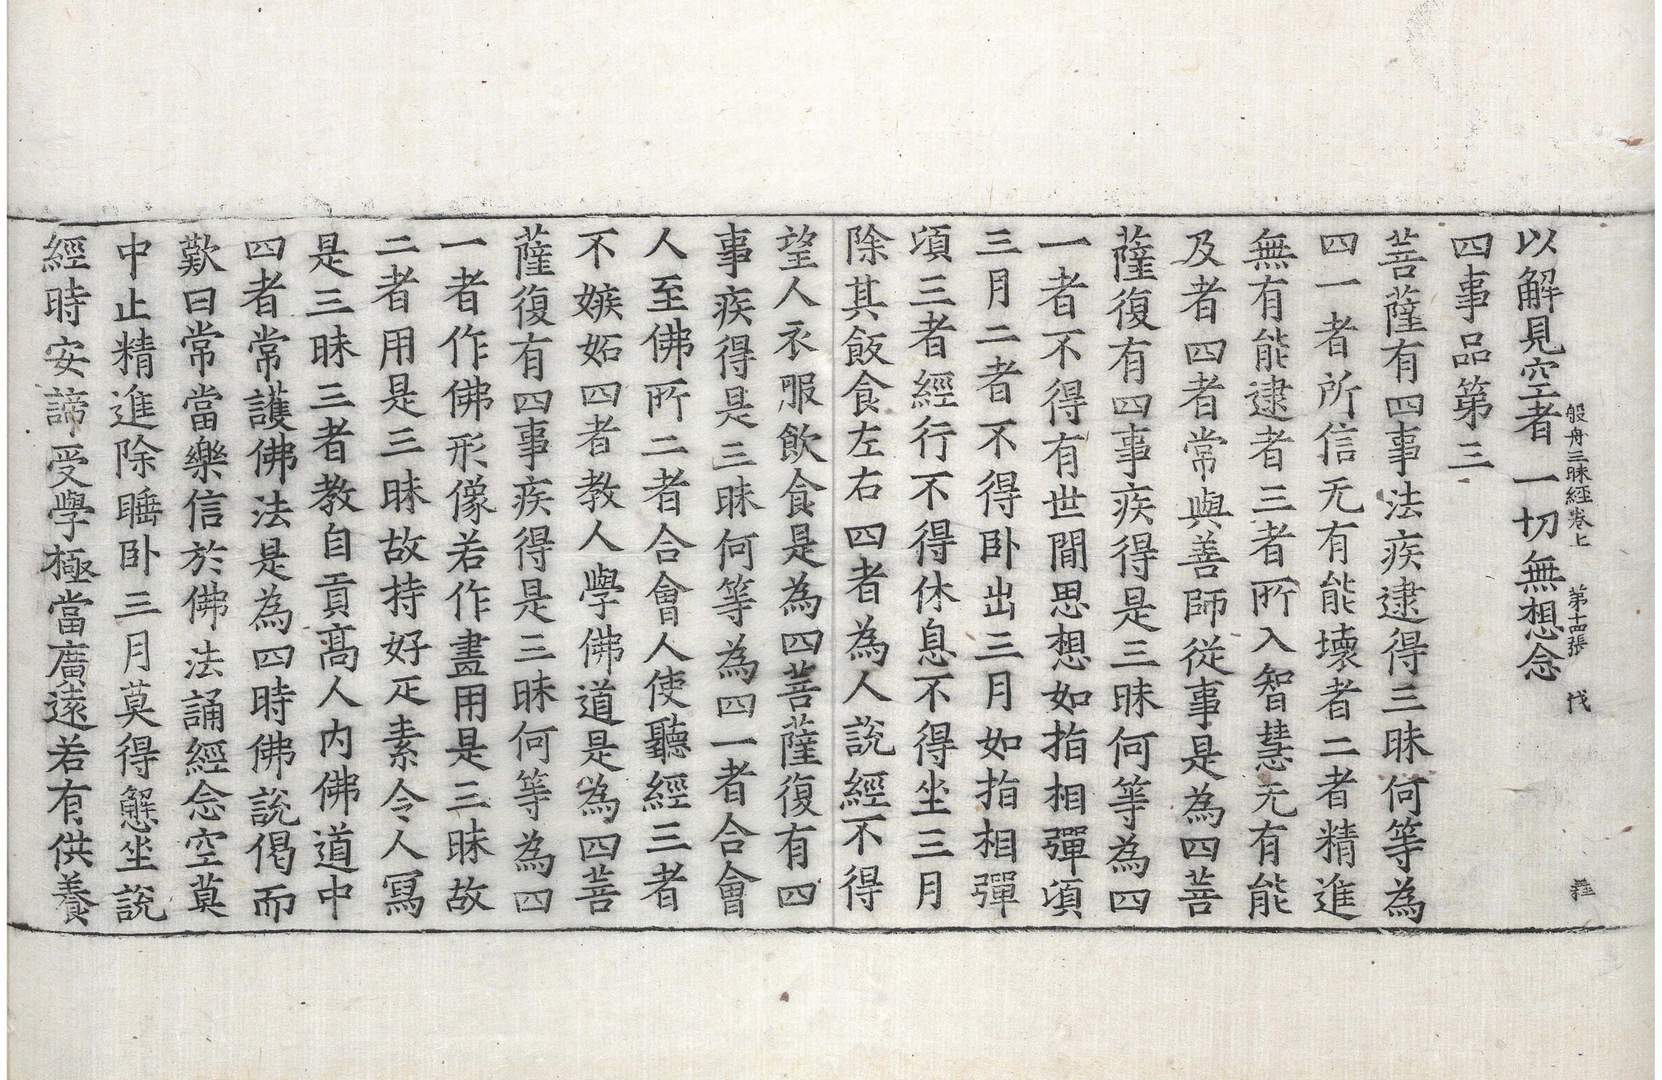 般舟三昧經卷上 第十四張 伐
以解見空者一切無想念
四事品第三
菩薩有四事法疾逮得三昧何等為
四一者所信无有能壞者二者精進
無有能逮者三者所入智慧无有能
及者四者常與善師從事是為四菩
薩復有四事疾得是三昧何等為四
一者不得有世閒思想如指相彈頃
三月二者不得臥出三月如指相彈
頃三者經行不得休息不得坐三月
除其飯食左右四者為人說經不得
望人衣服飲食是為四菩薩復有四
事疾得是三昧何等為四一者合會
人至佛所二者合會人使聽經三者
不嫉妬四者教人學佛道是為四菩
薩復有四事疾得是三昧何等為四
一者作佛形像若作畫用是三昧故
二者用是三昧故持好疋素令人寫
是三昧三者教自貢高人內佛道中
四者常護佛法是為四時佛說偈而
歎曰常當樂信於佛法誦經念空莫
中止精進除睡臥三月莫得懈坐說
經時安諦受學極當廣遠若有供養